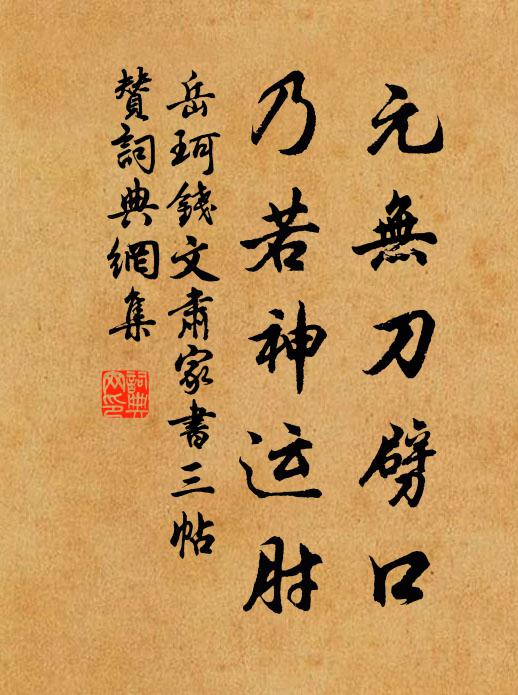 元無刀劈口
乃若神运肘
岳珂錢文肅家書三帖
贊詞典網集
詞典
网印